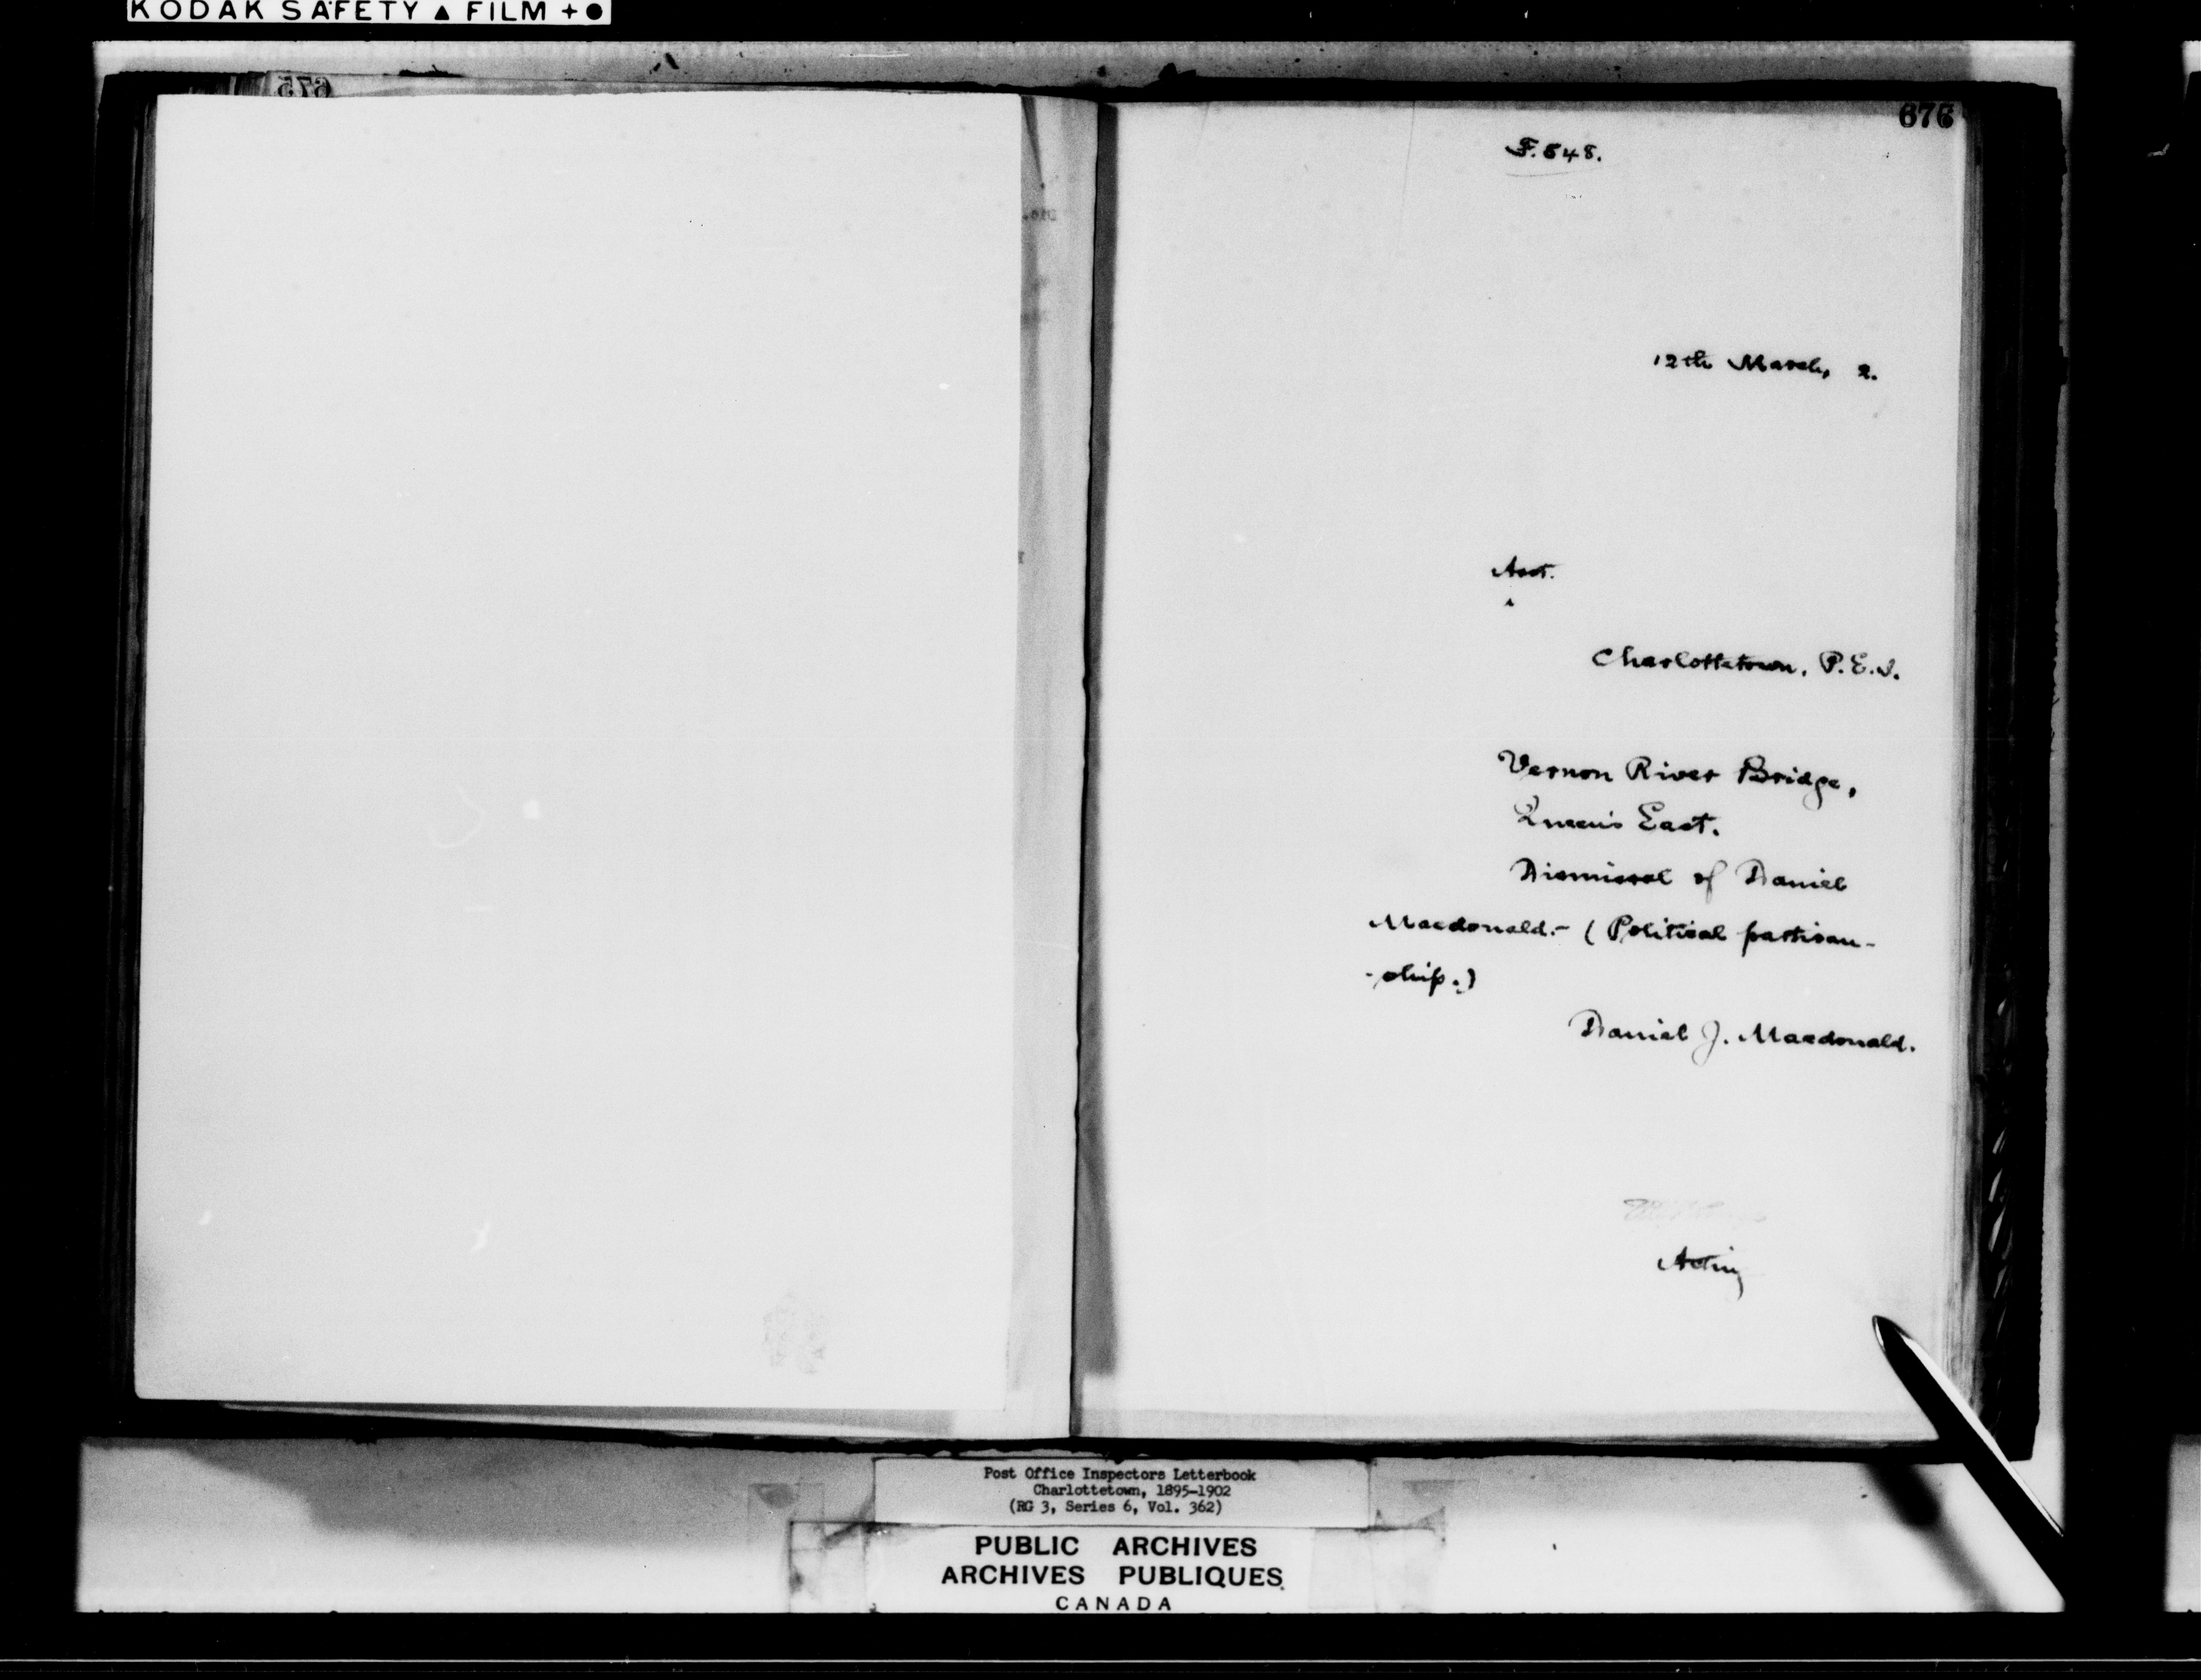 KODAK SAFETY ▲ FILM + ●
675
676
F. 548.
12th March, 2.
Asst.
Charlottetown, P.E.I.
Vernon River Bridge,
Queen's East.
Dismissal of Daniel
Macdonald.- (Political partisan-
-ship.)
Daniel J. Macdonald.
Acting
Post Office Inspectors Letterbook
Charlottetown, 1895-1902
(RG 3, Series 6, Vol. 362)
PUBLIC ARCHIVES
ARCHIVES PUBLIQUES
CANADA